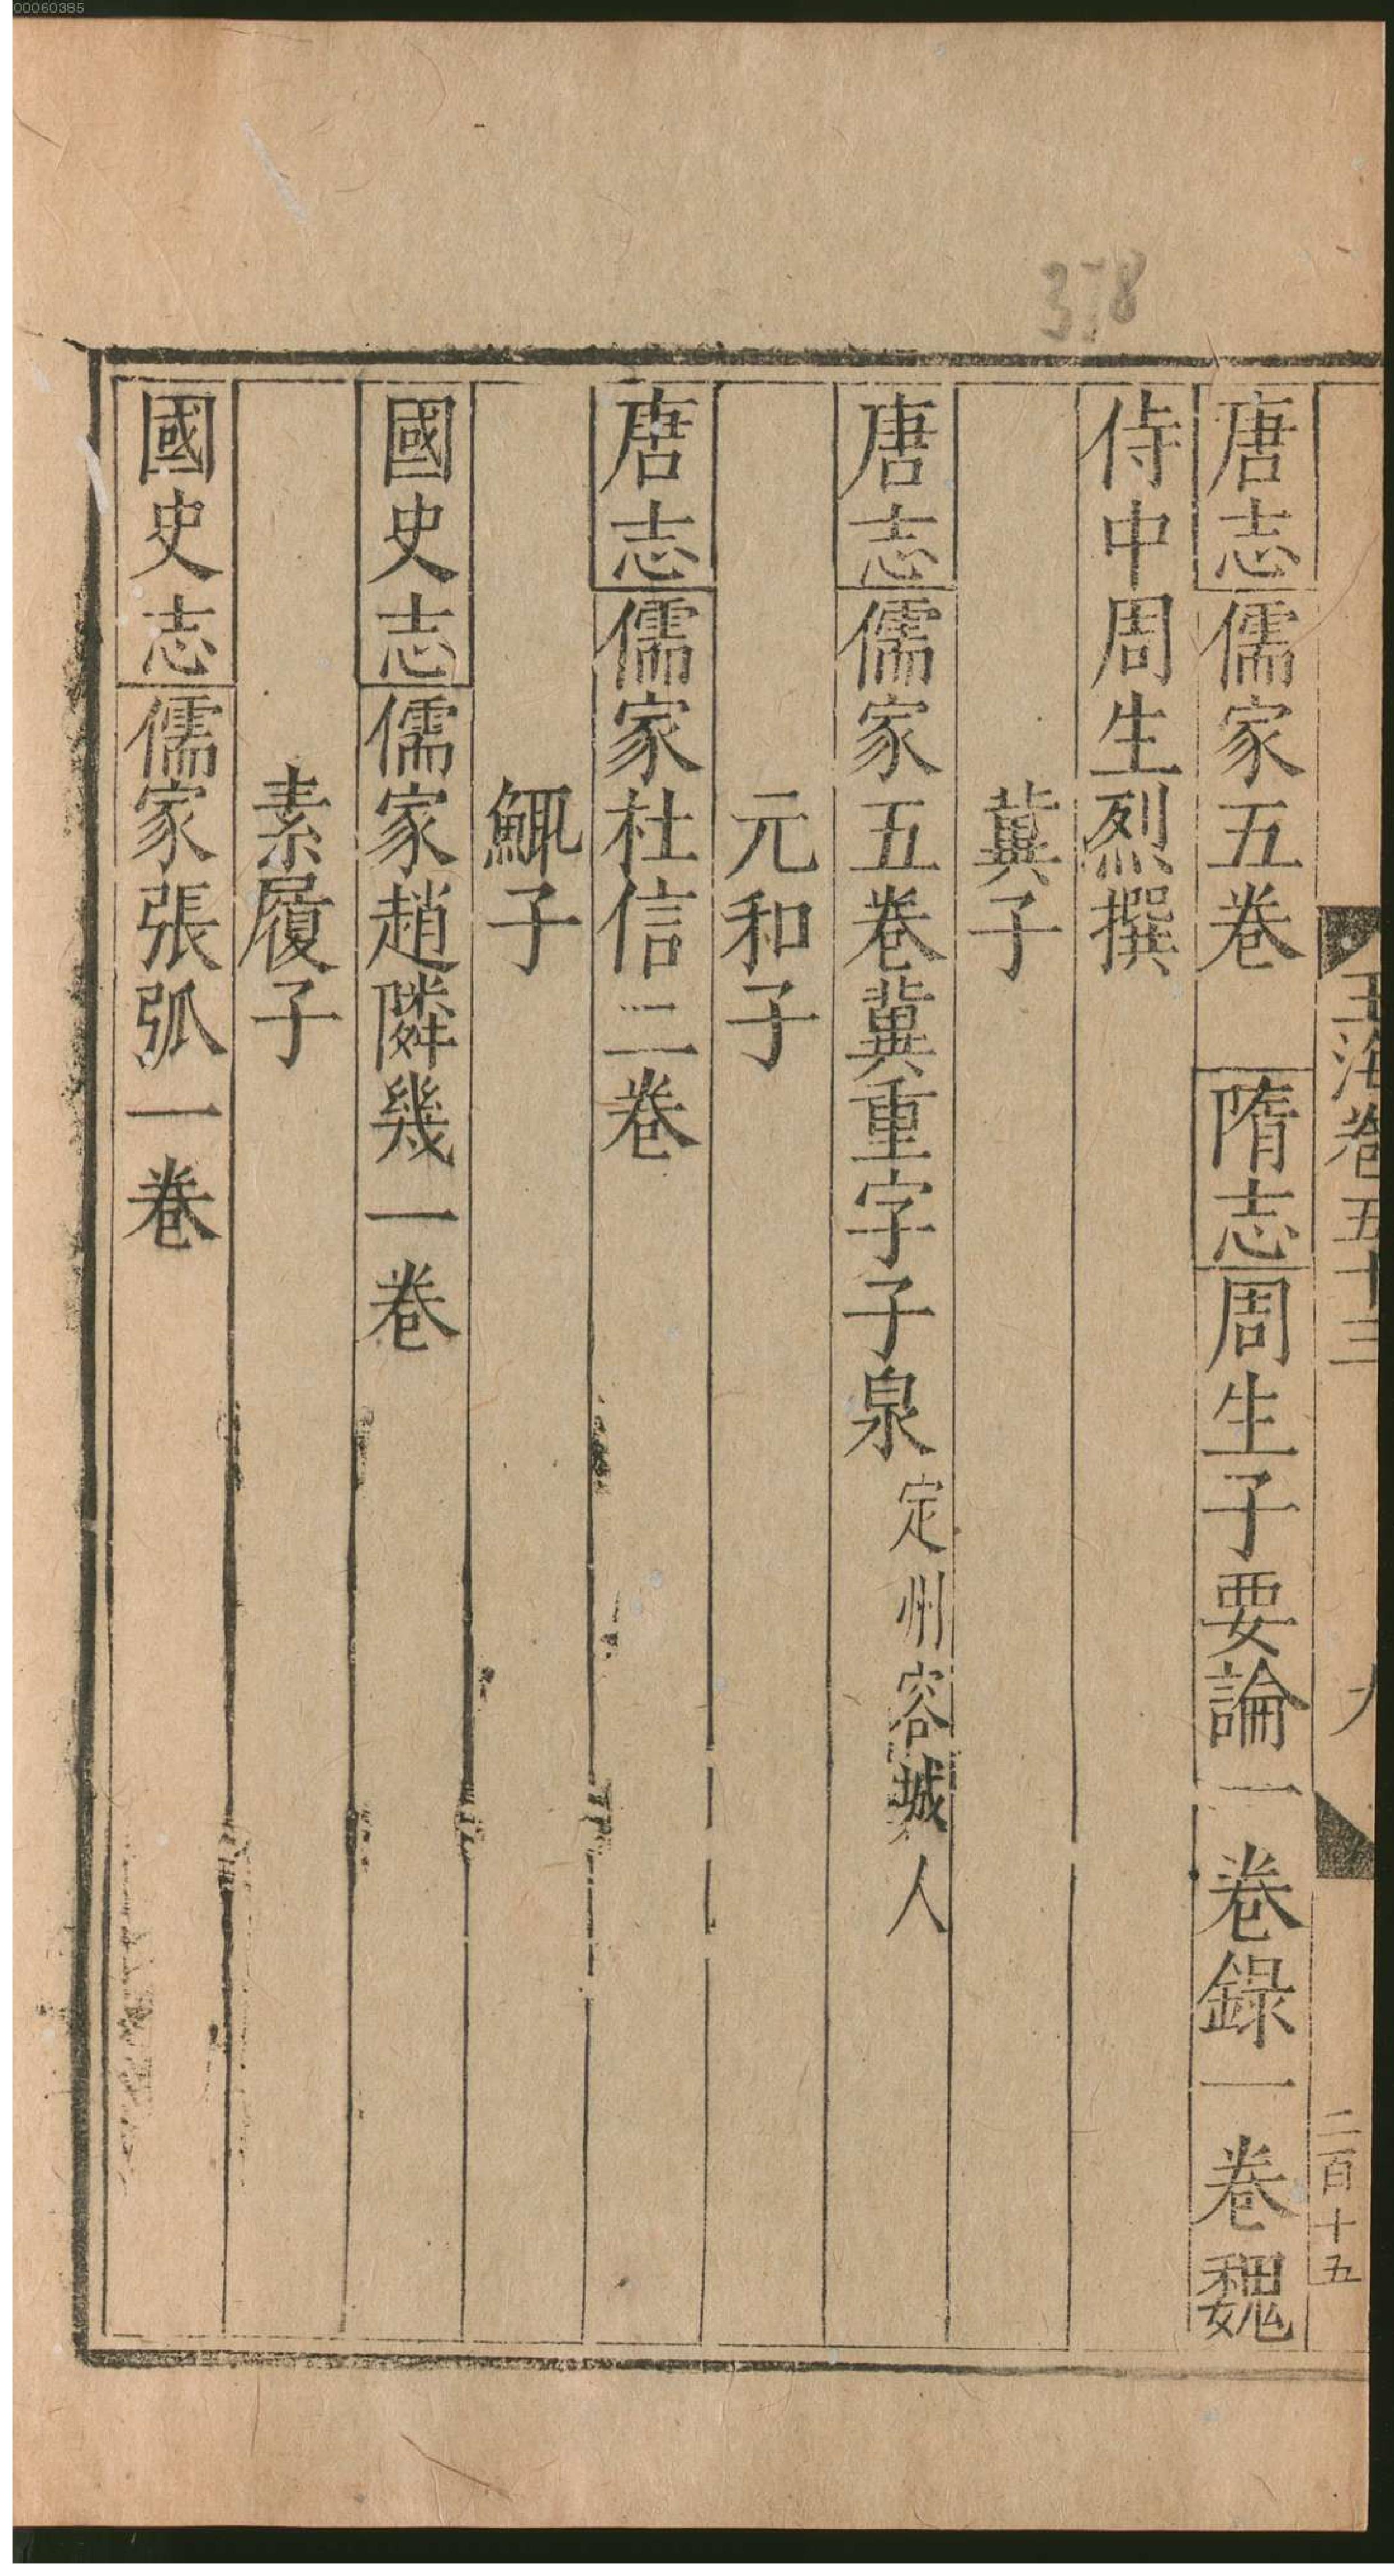 00060385
378
玉海卷五十三
二百十五
唐志儒家五卷　隋志周生子要論一卷錄一卷魏
侍中周生烈撰
冀子
唐志儒家五卷冀重字子泉定州容城人
元和子
唐志儒家杜信二卷
鯫子
國史志儒家趙隣幾一卷
素履子
國史志儒家張弧一卷